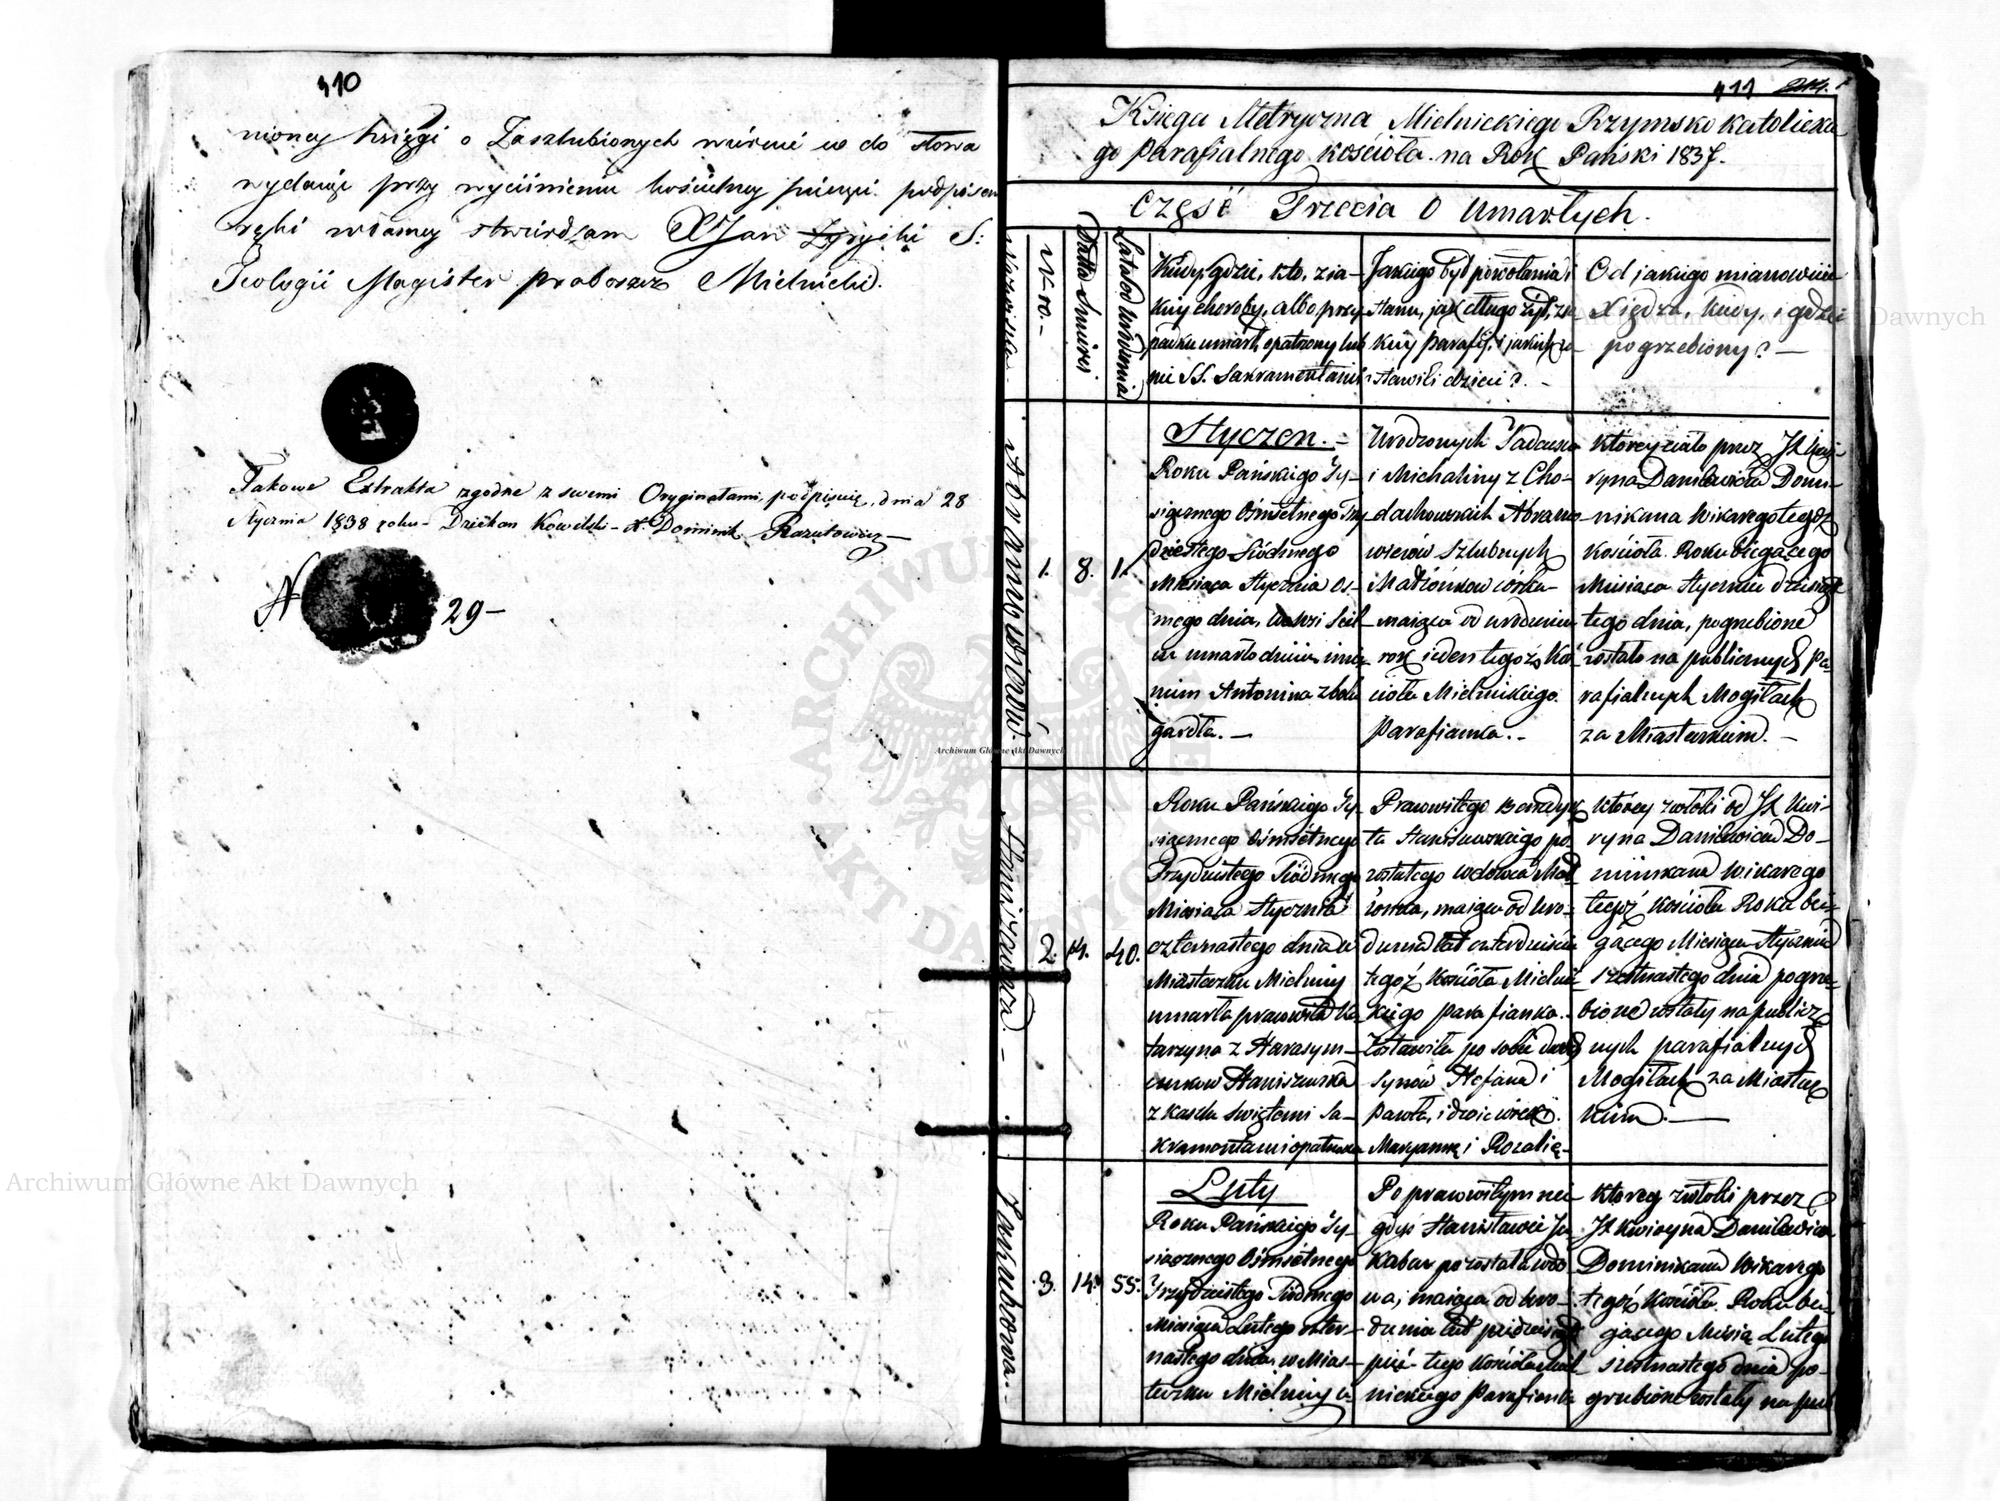 410
nioney księgi o Zaszlubionych w do słowa
wydaię przy wyciśnieniu kościelney pieczęci podpisem
ręki własney stwierdzam X Jan Zyrycki S:
Teologii Magister proboszcz Mielnicki.
Takowe Extrakta zgodne z swemi Oryginałami, podpisuię, dnia 28
Stycznia 1838 roku - Dziekan Kowelski - X. Dominik
N 29 -
411
Księga Metryczna Mielnickiego Rzymsko Katolickie
go Parafialnego Kościoła na Rok Pański 1837.
Część Trzecia O Umarłych.
Nazwiska.
Nro.
Datta Smierci
Lata od Urodzenia
Kiedy, gdzie, kto, z ia-
kiey choroby, albo przy-
padku umarł, opatrzony lub
nie SS. Sakramentami
Jakiego był powołania i
stanu, jak długo żył, z ia-
kiey Parafij, i jakich zo-
stawili dzieci?
Od jakiego mianowicie
Xiędza, kiedy, i gdzie
pogrzebiony? -
Abramowiczów.
1.
8.
1.
Styczeń. -
Roku Pańskiego Ty-
siącznego Ośmsetnego Trzy
dziestego Siódmego
Miesiąca Stycznia Os-
mego dnia, we Wsi
umarło dziecie imie-
niem Antonina z bolu
gardła. -
Urodzonych Tadeusza
i Michaliny z Cho-
dachowskich Abramo-
wiczów Szlubnych
Małżonków córka
maiąca od urodzenia
rok ieden tegoż Koś-
cioła Mielnickiego
Parafianka. -
którey ciało przez JX Kwi-
ryna Danilewicza Domi-
nikana Wikarego tegoż
Kościoła Roku bieżącego
Miesiąca Stycznia dziesią-
tego dnia, pogrzebione
zostało na publicznych Pa-
rafialnych Mogiłach
za Miasteczkiem. -
Staniszewska. -
2.
14.
40.
Roku Pańskiego Ty-
siącznego Ośmsetnego
Trzydziestego Siódmego
Miesiąca Stycznia
czternastego dnia w
Miasteczku Mielnicy
umarła pracowita Ka-
tarzyna z Harasym-
czuków Staniszewska
z kaszlu Swiętemi Sa-
kramentami opatrzona
Pracowitego Benedyk
ta Staniszewskiego po-
zostałego wdowca Mał-
żonka, maiąca od uro-
dzenia lat czterdzieście
tegoż Kościoła Mielni-
ckiego Parafianka.
Zostawiła po sobie dwoch
Synów Stefana i
Pawła, i dwie córek
Maryannę i Rozalię -
którey zwłoki od JX Kwi-
ryna Danilewicza Do-
minikana Wikarego
tegoż Kościoła Roku bie-
żącego Miesiąca Stycznia
szesnastego dnia pogrze-
bione zostały na publicz-
nych parafialnych
Mogiłach za Miastecz-
kiem. -
3.
14.
55.
Luty
Roku Pańskiego Ty-
siącznego Ośmsetnego
Trzydziestego Siódmego
Miesiąca Lutego czter-
nastego dnia, w Mias-
teczku Mielnicy u-
Po pracowitym nie-
gdyś Stanisławie Ja-
kabu pozostała wdo-
wa, maiąca od uro-
dzenia lat piędziesiąt
pięć tego Kościoła Miel-
nickiego Parafianka
którey zwłoki przez
JX Kwiryna Danilewicza
Dominikana Wikarego
tegoż Kościoła Roku bie-
żącego Miesią. Lutego
szesnastego dnia po-
grzebione zostały na pub
Archiwum Główne Akt Dawnych
Archiwum Główne Akt Dawnych
Archiwum Główne Akt Dawnych
ARCHIWUM GŁÓWNE AKT DAWNYCH